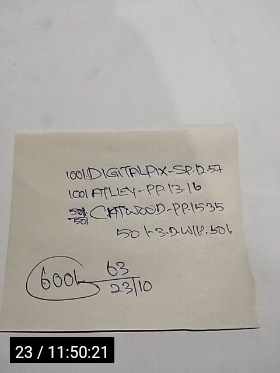 1001 DIGITALPIX-SP.D.57
1001 ATLEY-PP.13.16
501 CATWOOD-PP.1535
501-S.D.W.P.506
6001 63
23/10
23 / 11:50:21